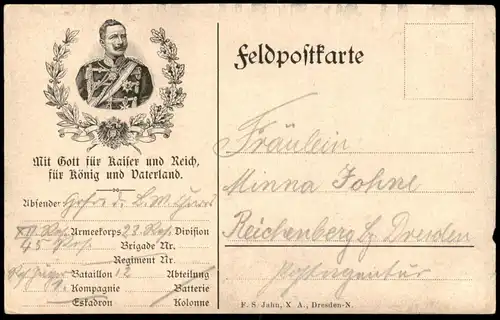 Mit Gott für Kaiser und Reich,
für König und Vaterland.
Absender d. L. W.
XII. Res. Armeekorps 23. Res. Division
45 Res. Brigade Nr.
Regiment Nr.
Bataillon 12 Abteilung
1. Kompagnie Batterie
Eskadron Kolonne
Feldpostkarte
Fräulein
Minna Johne
Reichenberg b/ Dresden
Postagentur
F. S. Jahn, X. A., Dresden-N.